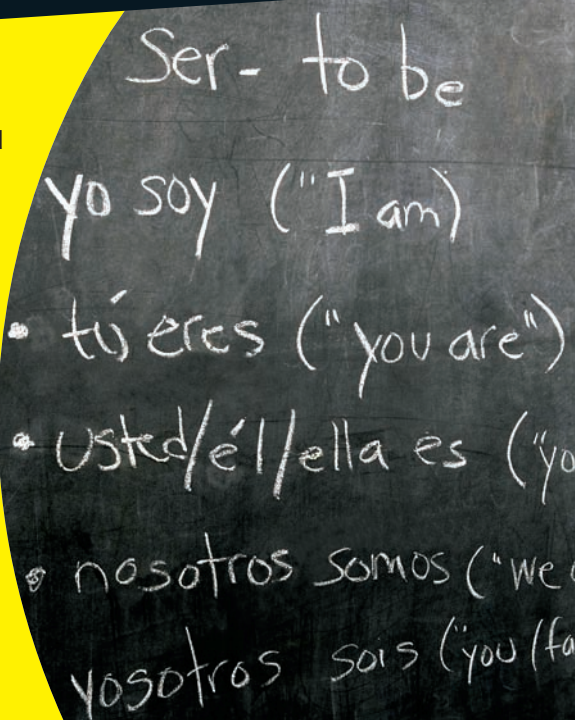 Ser- to be
yo soy ("I am)
• tú eres ("you are")
• usted/él/ella es ("yo
• nosotros somos ("we
yosotros sois ("you (fa